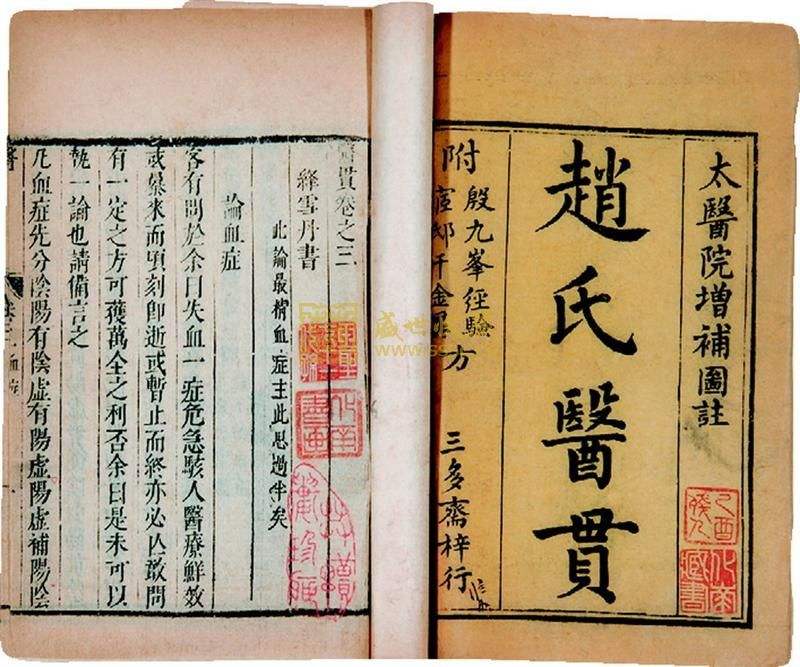 太醫院增補圖註
趙氏醫貫
殷九峯經驗
附
千金
方
三多齋梓行
醫貫卷之三
絳雪丹書
此論最精血症主此思過半矣
論血症
客有問於余曰失血一症危急駭人醫療鮮效
或暴來而頃刻即逝或暫止而終亦必亡敢問
有一定之方可獲萬全之利否余曰是未可以
執一論也請備言之
凡血症先分陰陽有陰虛有陽虛陽虛補陽陰
盛世
www.s